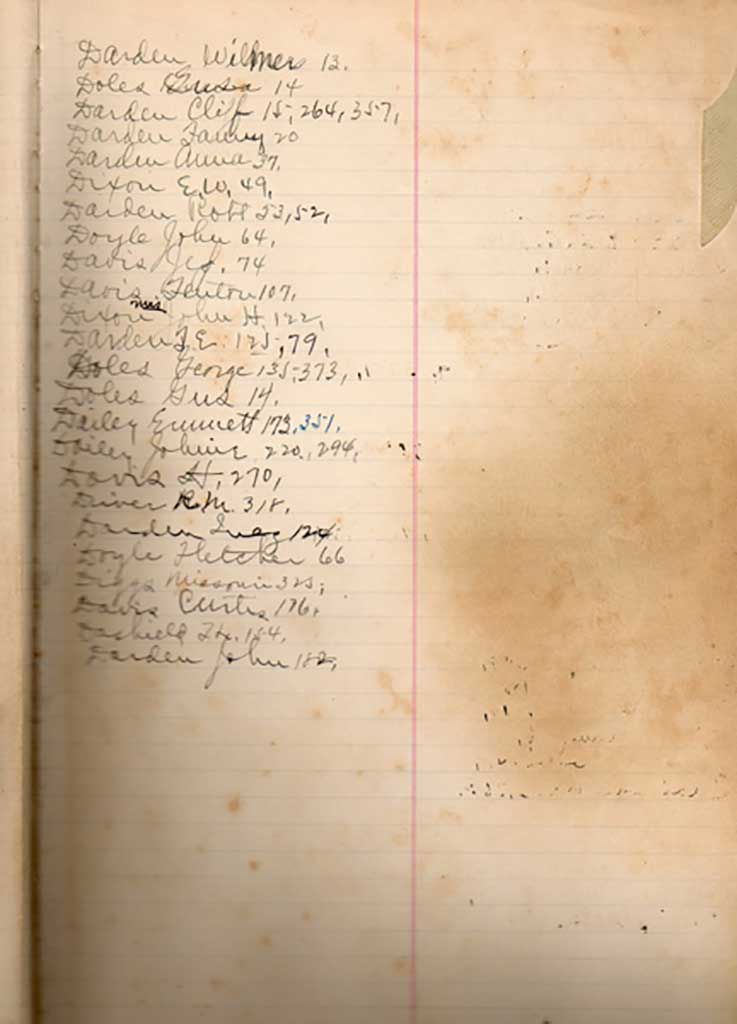 Darden Wilmer 13.
Doles 14
Darden Cliff 15, 264, 357,
Darden Fanny 20
Darden Anna 37,
Dixon E, W, 49,
Darden Robt 53, 52,
Doyle John 64,
Davis Jef. 74
Davis Fenton 107,
Dixon John H. 122,
Darden J E. 125, 79,
Doles George 135, 373,
Doles Gus 14.
Dailey Emmett 173, 351,
Dailey Johnie 220, 294,
Davis H, 270,
Driver R. M. 318,
Darden Inez 124.
Doyle Fletcher 66
Diggs Missouri 325,
Davis Curtis 176,
Dashield 184,
Darden John 182,